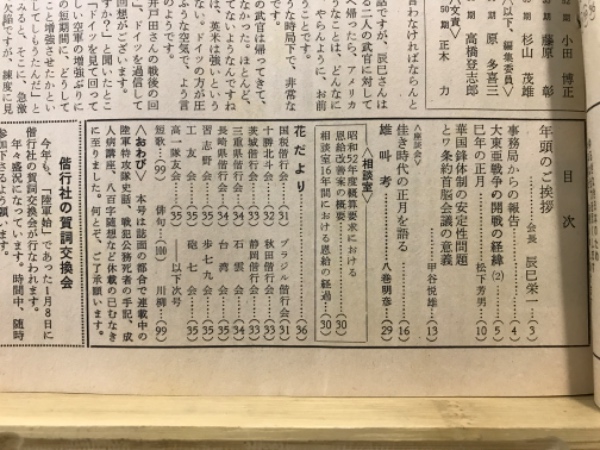 期 小田 博正
期 藤原 彰
期 杉山 茂雄
以下、編集委員〉
期 原 多喜三
期 高橋登志郎
50期 正木 力
言わなければならんと
話ですが、辰巳さんは
る二人の武官に対して
へ帰ったら、アメリカ
、やらんように、お前
うことです。
うな時局下で、非常な
の武官は帰ってきて、
なかった。ほとんど、
ていないようなんですね
は、英米は強いという
ない。ドイツの方が圧
うな空気で、よう言
のようです。
井戸田さんの戦後の回
回想がございます。
、ドイツを過信して
すか？」と聞いたとこ
「ドイツを見て回って
しい空軍の増強ぶりに
の短期間に、どうして
てしもうたんだ」と
こと増強させたかとい
みると、そこに、急激
欠陥ですが、練度に見
目次
年頭のご挨拶
会長 辰巳栄一…(3)
事務局からの報告…(4)
大東亜戦争の開戦の経緯(2)…(5)
巳年の正月 松下芳男…(10)
華国鋒体制の安定性問題
とワ条約首脳会議の意義
甲谷悦雄…(13)
〈座談会〉
佳き時代の正月を語る…(16)
雄叫考 八巻明彦…(29)
〈相談室〉
昭和52年度概算要求における
恩給改善案の概要…(30)
相談室16年間における恩給の経過…(30)
花だより…(36)
国税偕行会(31) ブラジル偕行会(31)
十勝北斗会(32) 秋田偕行会(33)
茨城偕行会(33) 静岡偕行会(33)
三重県偕行会(34) 石雲会(34)
長崎県偕行会(34) 台湾会(34)
習志野会(35) 歩七九会(35)
工友会(35) 砲七会(35)
高一隊友会(35) ――以下次号
短歌…(99) 俳句(100) 川柳…(99)
〈おわび〉 本号は誌面の都合で連載中の
陸軍特攻隊史話、戦犯公務死者の手記、成
人病講座、八百字随想など休載の已むなき
に至りました。何とぞ、ご了承願います。
偕行社の賀詞交換会
今年も、「陸軍始」であった1月8日に
偕行社の賀詞交換会が行なわれます。
年々盛況になっています。時間中、随時
参加下さるよう願います。